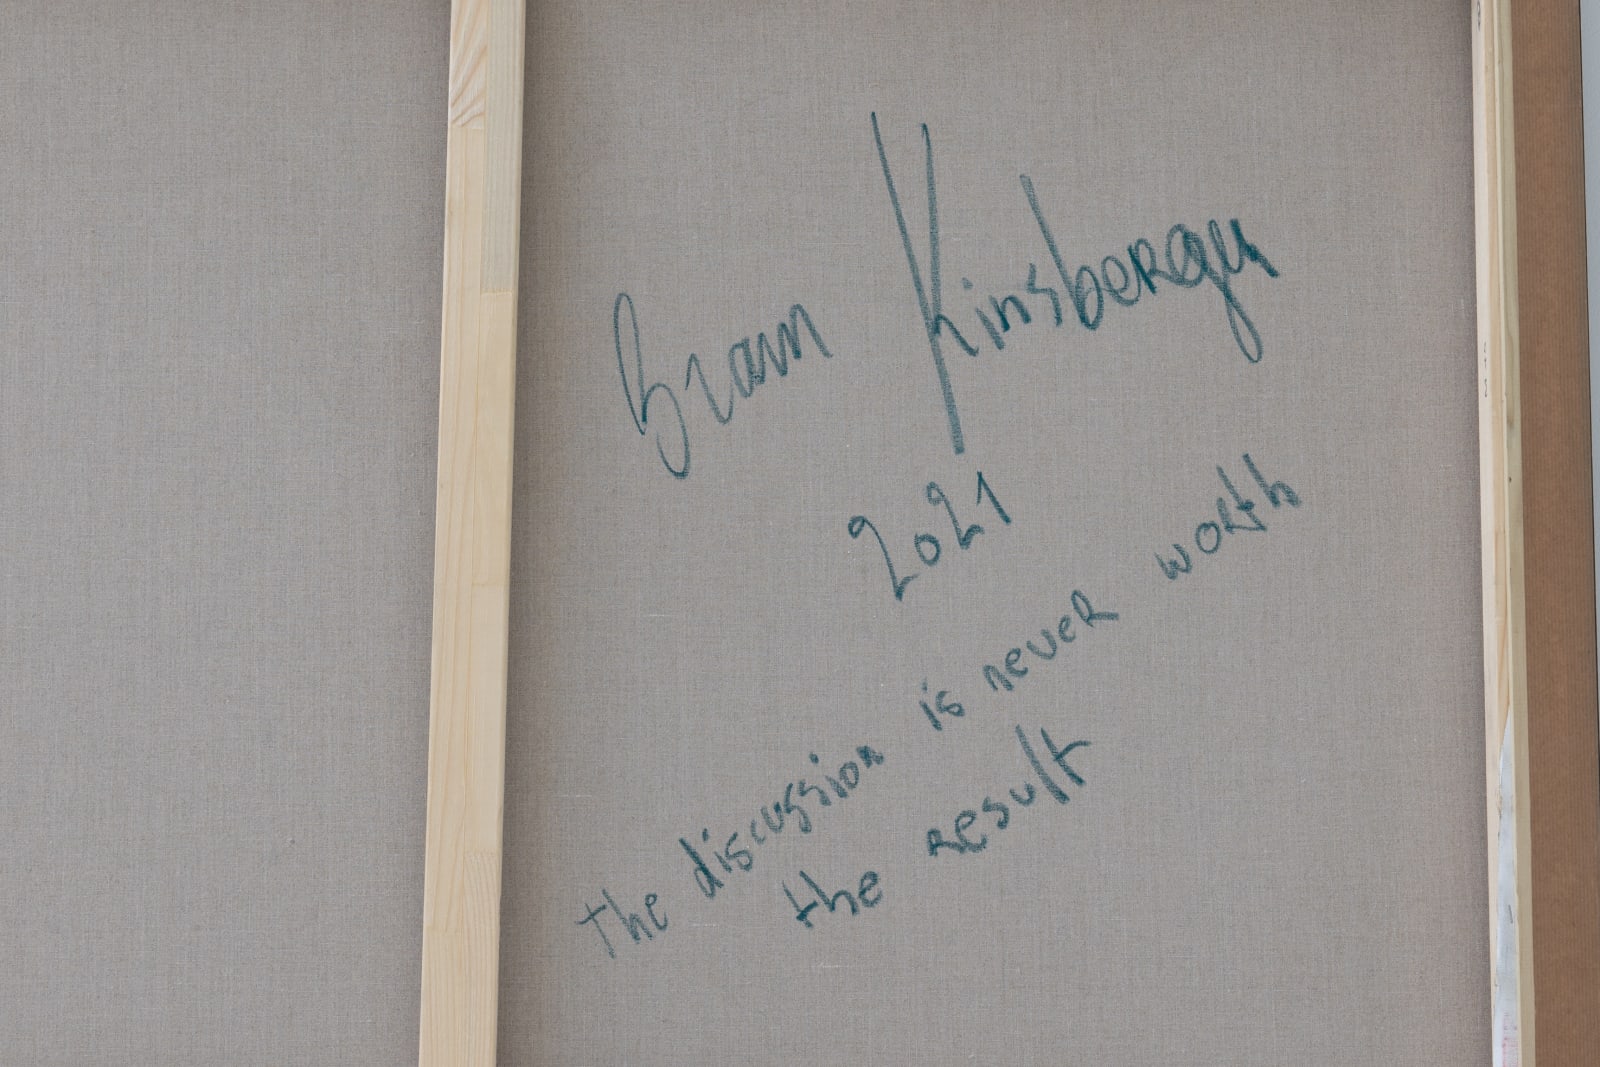 Bram Kinsbergen
2021
the discussion is never worth
the result